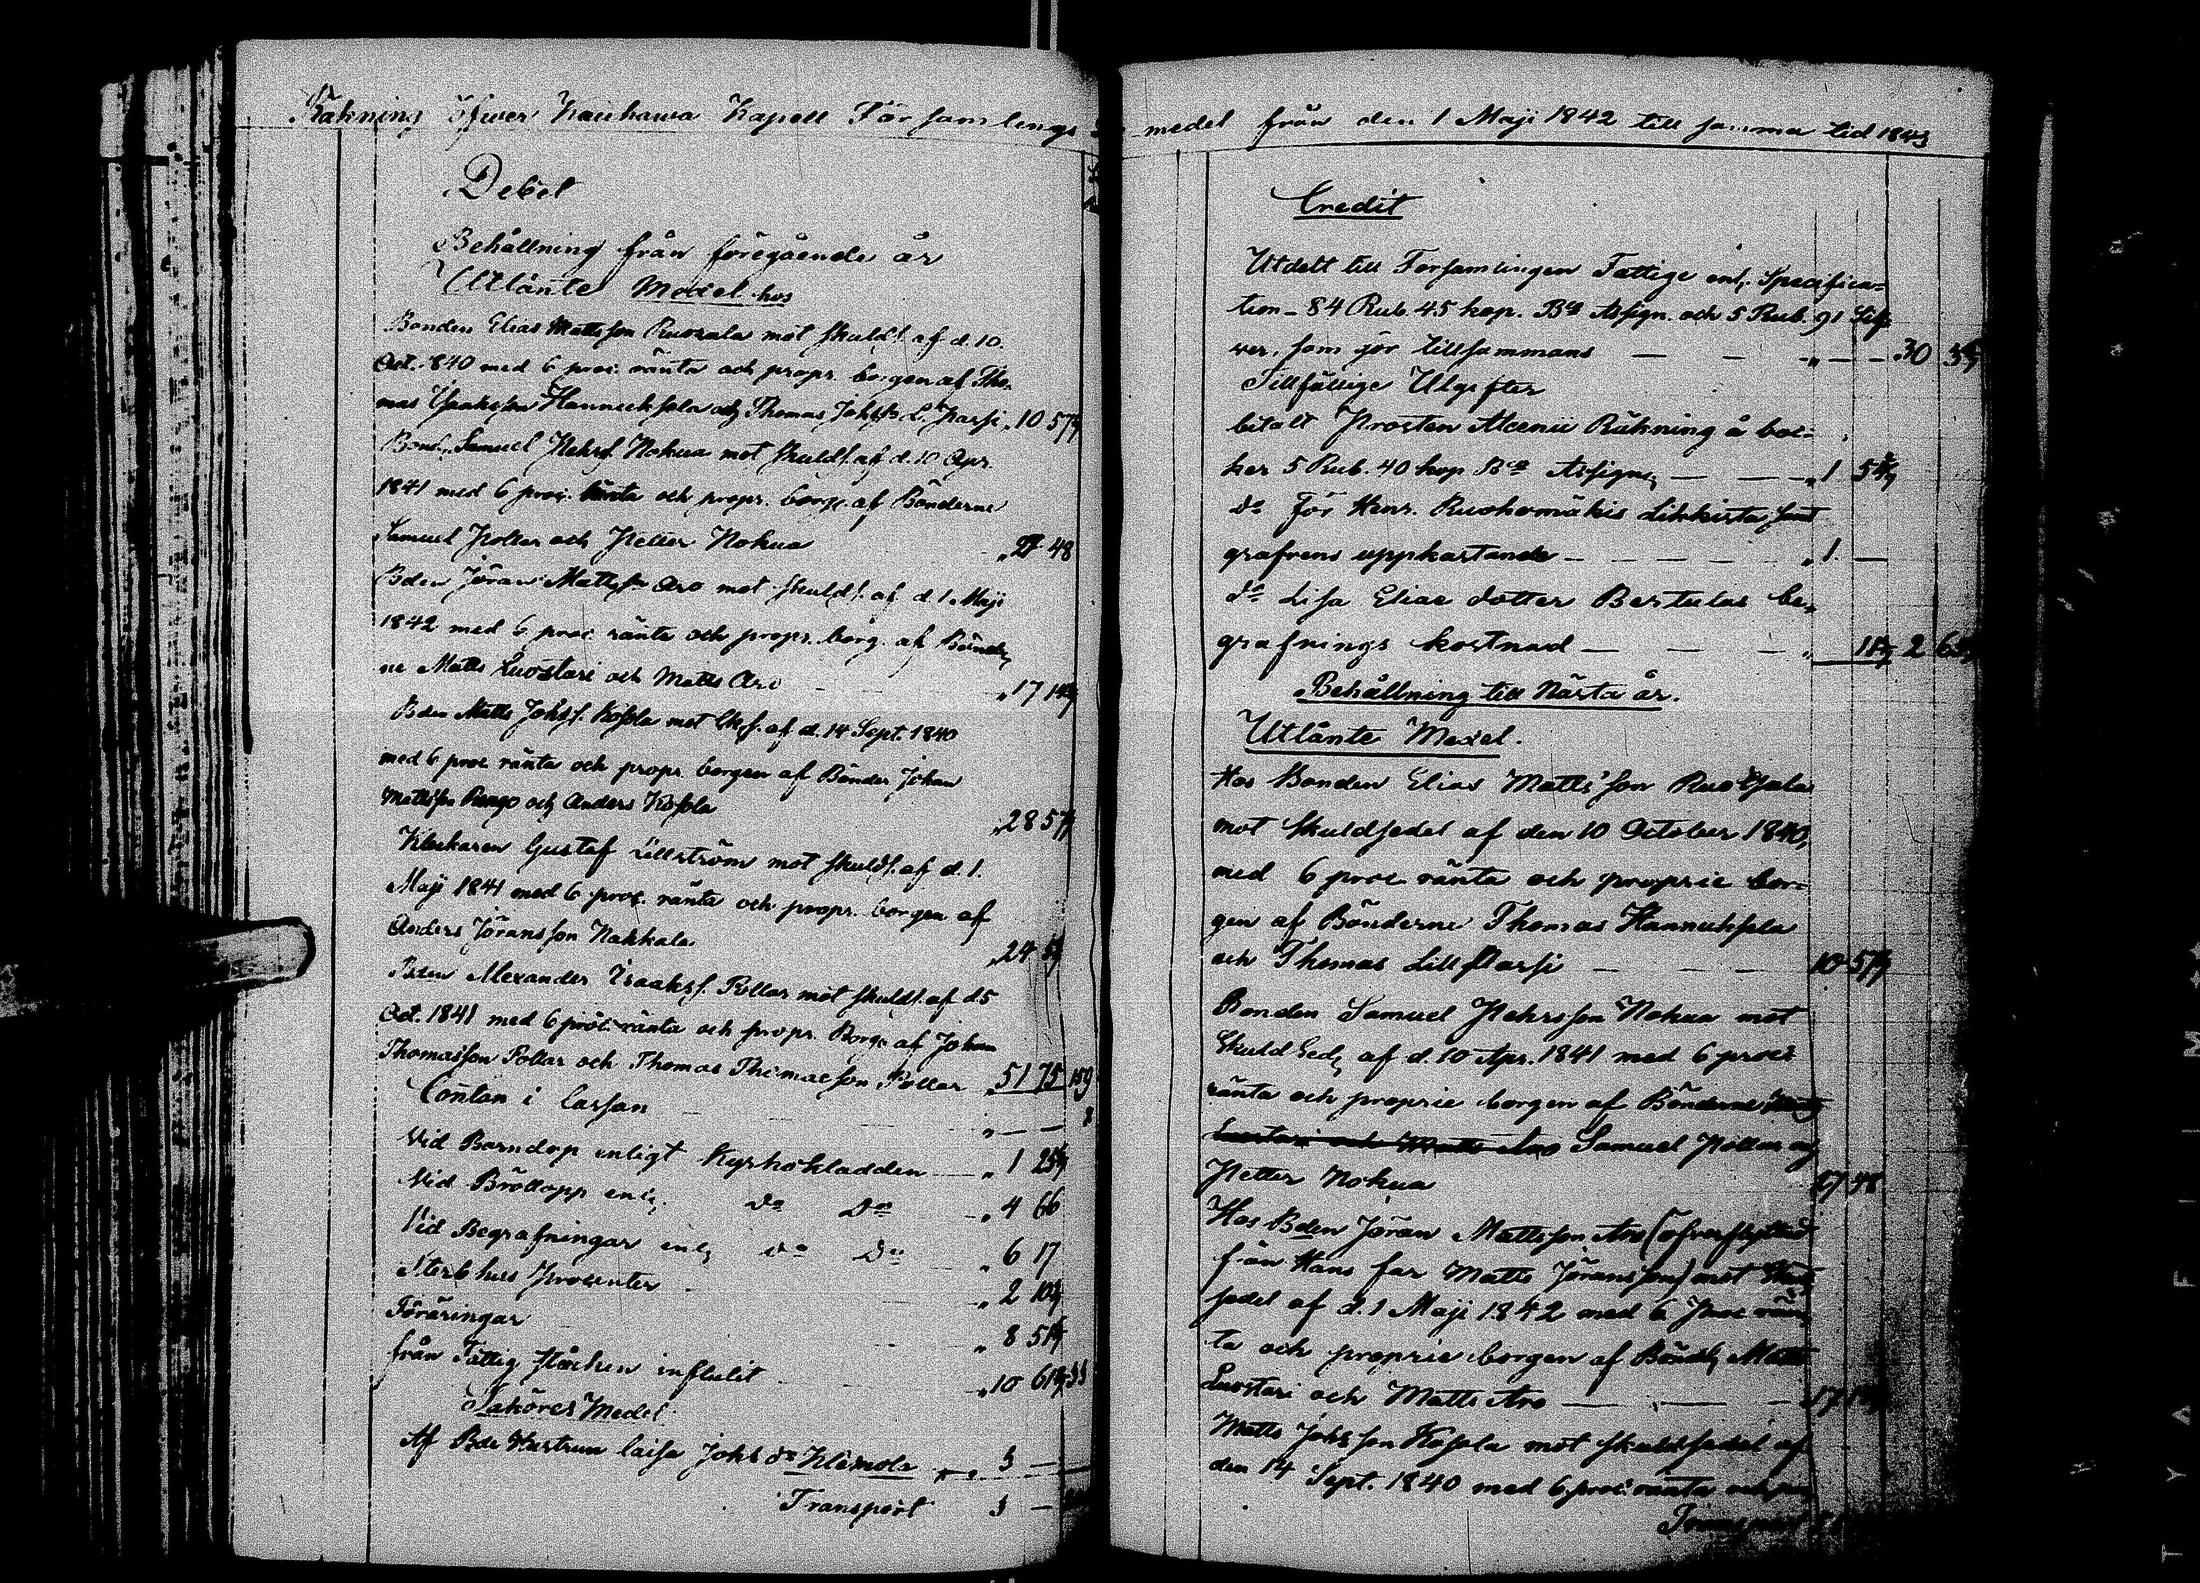 Räkning öfwer Kauhawa Kapell Församlings medel från den 1 Maji 1842 till samma tid 1843
Debet
Behållning från föregående år
Utlånte Medel hos
Bonden Elias Mattsson Ruotzala mot skulds. af d. 10.
Oct. 1840 med 6 proc. ränta och propr. borgen af Tho-
mas Isaaksson Hannuksela och Thomas Johss. L. Passi „ 10 57
Bond. Samuel Pehrs. Nokua mot skulds. af d. 10 Apr.
1841 med 6 proc. ränta och propr. borge. af Bönderne
Samuel Pollar och Petter Nokua „ 27 48
Bden Jöran Mattss. Aro mot skulds. af d. 1 Maji
1842 med 6 proc. ränta och propr. borg. af Bönder
ne Matts Luostari och Matts Aro „ 17 14
Bden Matts Johss. Kossola mot Sks. af d. 14 Sept. 1840
med 6 proc ränta och propr. borgen af Bönder Johan
Mattsson och Anders Kossola „ 28 57
Klockaren Gustaf Lillström mot skulds. af d. 1.
Maji 1841 med 6 proc. ränta och propr. borgen af
Anders Jöransson Nakkala „ 24
Bden Alexander Isaakss. Pollar mot skulds. af d 5
Oct. 1841 med 6 proc. ränta och propr. Borge af Johan
Thomasson Pollar och Thomas Thomasson Pollar „ 51 75 159
Contan i Cassan „ — — 8
Vid Barndop enligt Kyrkokladden „ 1 25
Vid Bröllopp enl. do Do „ 4 66
Vid Begrafningar enl. do Do „ 6 17
Sterbhus Procenter „ 2 10
Föräringar „ 8 51
från Fattig Stocken influtit „ 10 61 33
Tahöres Medel
Af Bde Hustrun Caisa Johs dr Klemola 3 —
Transport 3 —
Credit
Utdelt till Församlingen Fattige enl. Specifica-
tion – 84 Rub. 45 kop. Bco Assign. och 5 Rub. 91 Silf-
ver, som gör tillsammans — — „ — — 30
Tillfällige Utgifter
betalt Prosten Alcenii Räkning å böc-
ker 5 Rub. 40 kop Bco Assign. — — „ 1 54
do för Henr. Ruohomäkis Likkista samt
grafvens uppkastande — — — — „ 1. —
do Lisa Eliae dotter Bertulas be-
grafnings kostnad — — — „ 2
Behållning till Nästa år.
Utlånte Medel.
Hos Bonden Elias Matts'son Ruotsala
mot skuldsedel af den 10 October 1840,
med 6 proc ränta och proprie bor-
gen af Bönderne Thomas Hannuksela
och Thomas Lill Passi — — — 10 57
Bonden Samuel Pehrsson Nokua mot
Skuld Sed. af d. 10 Apr. 1841 med 6 proc
ränta och proprie borgen af Bönderne
Luostari och Matts Aro Samuel Pollar och
Petter Nokua 27 48
Hos Bden Jöran Mattsson Aro (öfverflyttad
från Hans far Matts Jöransson) mot
sedel af d. 1 Maji 1842 med 6 Proc rän
ta och proprie borgen af Bönd. Matts
Luostari och Matts Aro — — — 17
Matts Johsson Kossola mot skuldsedel af
den 14 Sept. 1840 med 6 proc ränta och
Transport